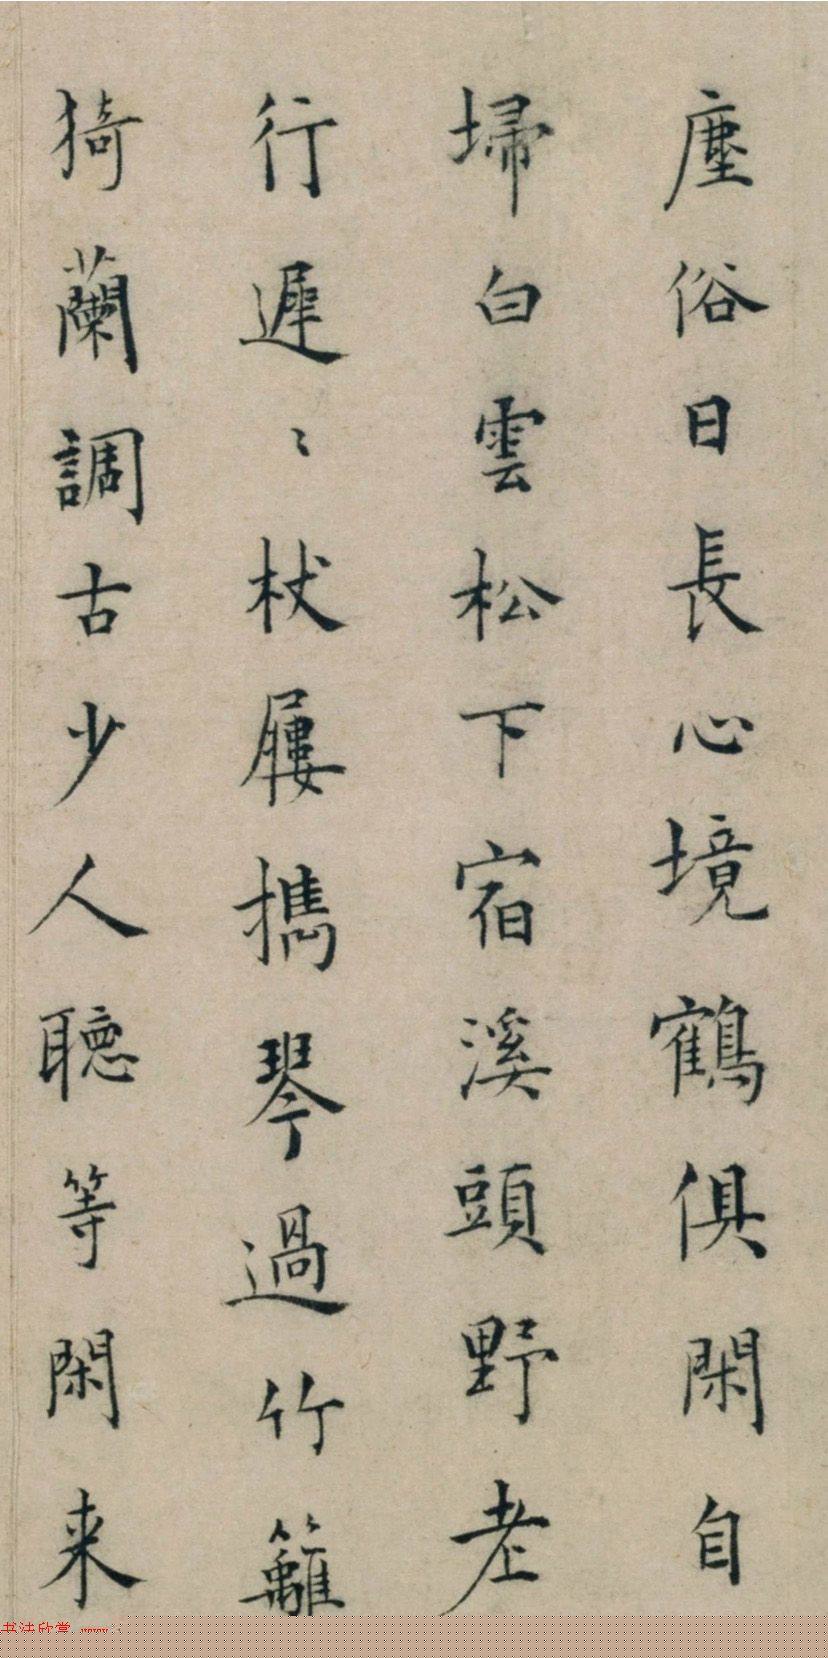 塵俗日長心境鶴俱閑自
埽白雲松下宿溪頭野老
行遲〻杖屨攜琴過竹籬
猗蘭調古少人聽等閑来
书法欣赏